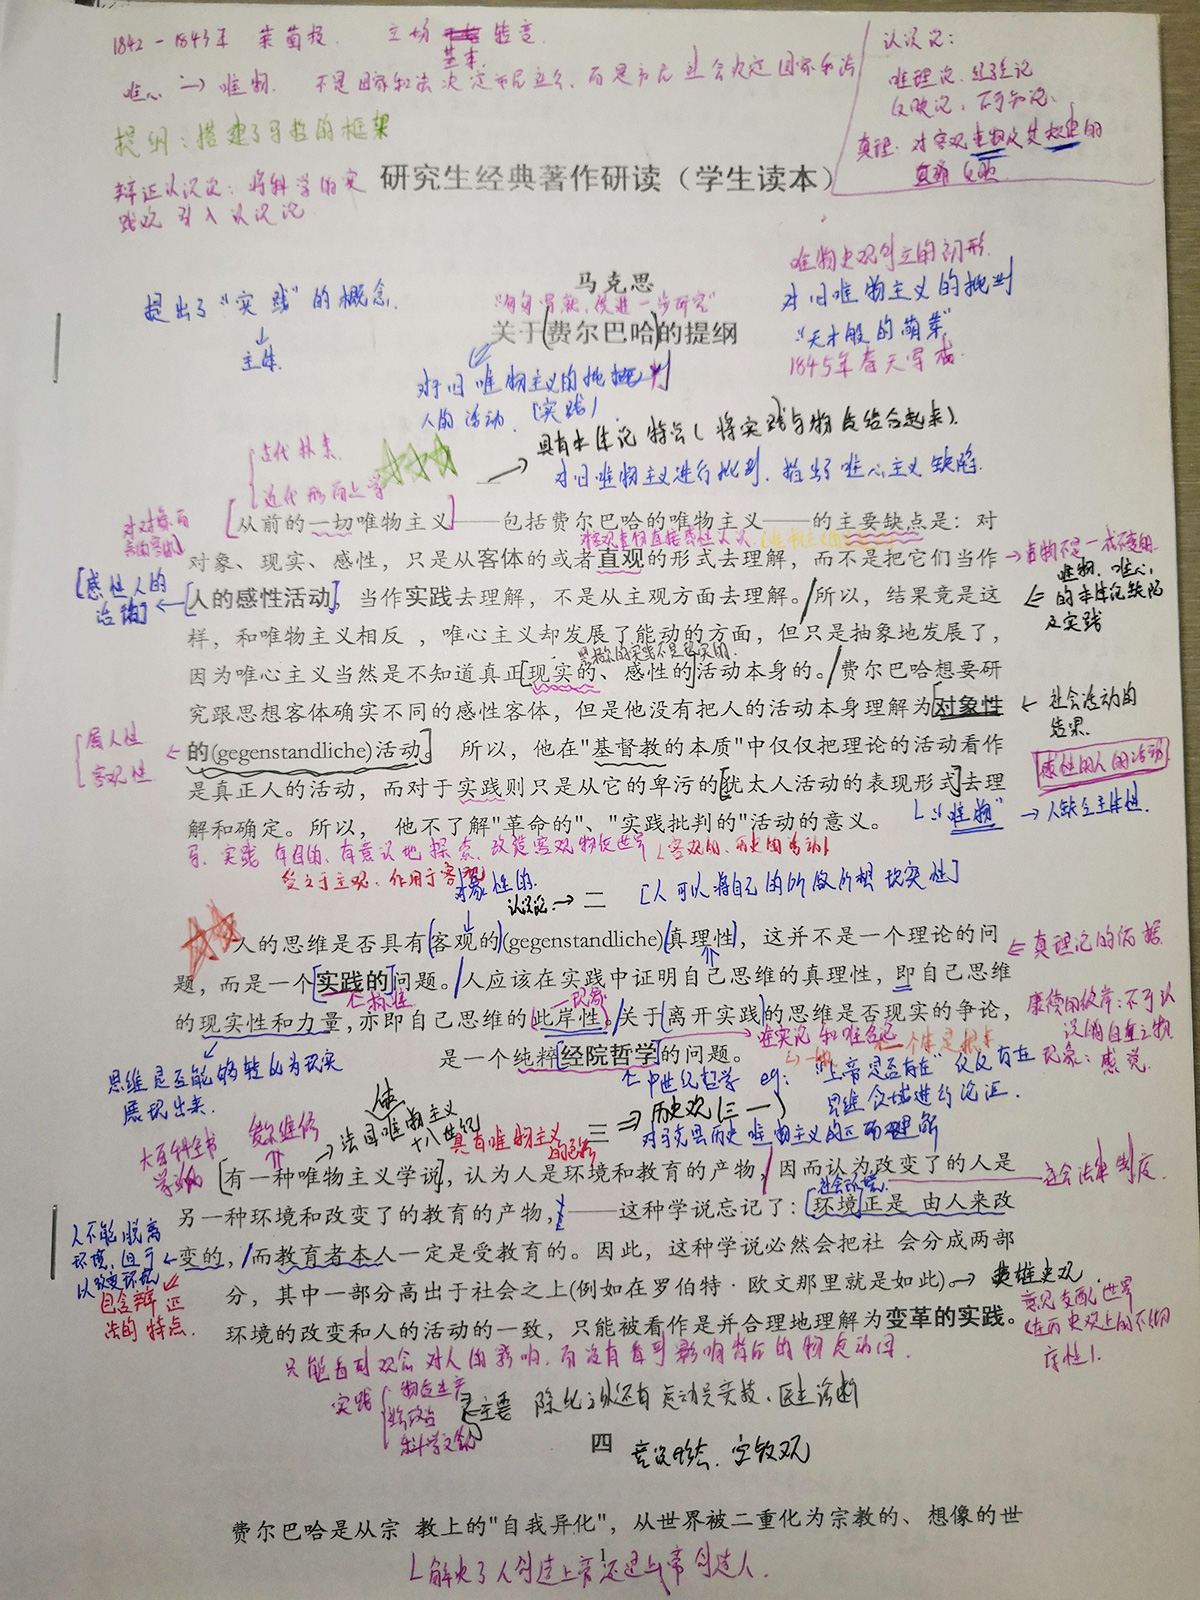 1842－1843年 莱茵报. 立场 转变
基本
唯心 → 唯物. 不是国家和法决定市民社会, 而是市民社会决定国家和法
认识论:
唯理论、经验论
反映论、不可知论、
真理: 对客观事物及其规律的
提纲: 搭建了马哲的框架
辩证认识论: 将科学的实
践观 引入认识论
研究生经典著作研读（学生读本）
唯物史观创立的初形.
马克思
提出了“实践”的概念.
对旧唯物主义的批判
关于(费尔巴哈)的提纲
“天才般的萌芽”
主体
1845年春天写成
对于旧唯物主义的批判
人的活动. (实践)
具有本体论特点(将实践与物质结合起来).
古代朴素.
近代形而上学
一
对旧唯物主义进行批判, 指出了唯心主义缺陷.
[从前的一切唯物主义]——包括费尔巴哈的唯物主义——的主要缺点是：对
对客观事物直接感性认识
对象、现实、感性，只是从客体的或者直观的形式去理解，而不是把它们当作
[感性人的
活动]
人的感性活动]，当作实践去理解，不是从主观方面去理解。/所以，结果竟是这
唯物、唯心
的本体论缺陷
及实践
样，和唯物主义相反 ，唯心主义却发展了能动的方面，但只是抽象地发展了，
因为唯心主义当然是不知道真正[现实的、感性的]活动本身的。/费尔巴哈想要研
究跟思想客体确实不同的感性客体，但是他没有把人的活动本身理解为[对象性
社会活动的
结果.
属人性
客观性
的(gegenstandliche)活动]。 所以，他在"基督教的本质"中仅仅把理论的活动看作
感性的人的活动
是真正人的活动，而对于实践则只是从它的卑污的[犹太人活动的表现形式]去理
解和确定。所以， 他不了解"革命的"、"实践批判的"活动的意义。
“唯物” → 人缺乏主体性.
实践 有目的、有意识地探索、改造客观物质世界 (客观的、历史的活动)
受之于主观、作用于客观
对象性的.
认识论 → 二 [人可以将自己的所做所想现实性]
人的思维是否具有(客观的)(gegenstandliche)(真理性)，这并不是一个理论的问
← 真理论的依据
题，而是一个[实践的]问题。/人应该在实践中证明自己思维的真理性，即自己思维
的现实性和力量，亦即自己思维的(此岸性。/关于[离开实践]的思维是否现实的争论，
康德的彼岸: 不可认
识的自在之物
现象: 感觉.
是一个纯粹[经院哲学]的问题。
唯实论 和 唯名论
思维是否能够转化为现实
展现出来.
中世纪哲学 eg: “上帝是否存在” 仅仅存在
思维领域进行论证.
⇒ 历史观(三一)
三
法国唯物主义
十八世纪
具有唯物主义
爱尔维修
大百科全书
学派的
[有一种唯物主义学说]，认为人是环境和教育的产物，/因而认为改变了的人是
社会法律制度
另一种环境和改变了的教育的产物，——这种学说忘记了：[环境]正是 由人来改
人不能脱离
环境, 但可
以改变环境
变的，/而教育者本人一定是受教育的。因此，这种学说必然会把社 会分成两部
包含辩证
法的特点.
分，其中一部分高出于社会之上(例如在罗伯特·欧文那里就是如此)。
英雄史观.
意见支配世界
(在历史观上的不彻
底性).
环境的改变和人的活动的一致，只能被看作是并合理地理解为变革的实践。
只能看到观念对人的影响, 而没有看到影响背后的物质动因.
实践
物质生产
科学文化
主要
四
意识形态. 宗教观
费尔巴哈是从宗 教上的"自我异化"，从世界被二重化为宗教的、想像的世
1
解决了人创造上帝还是上帝创造人.